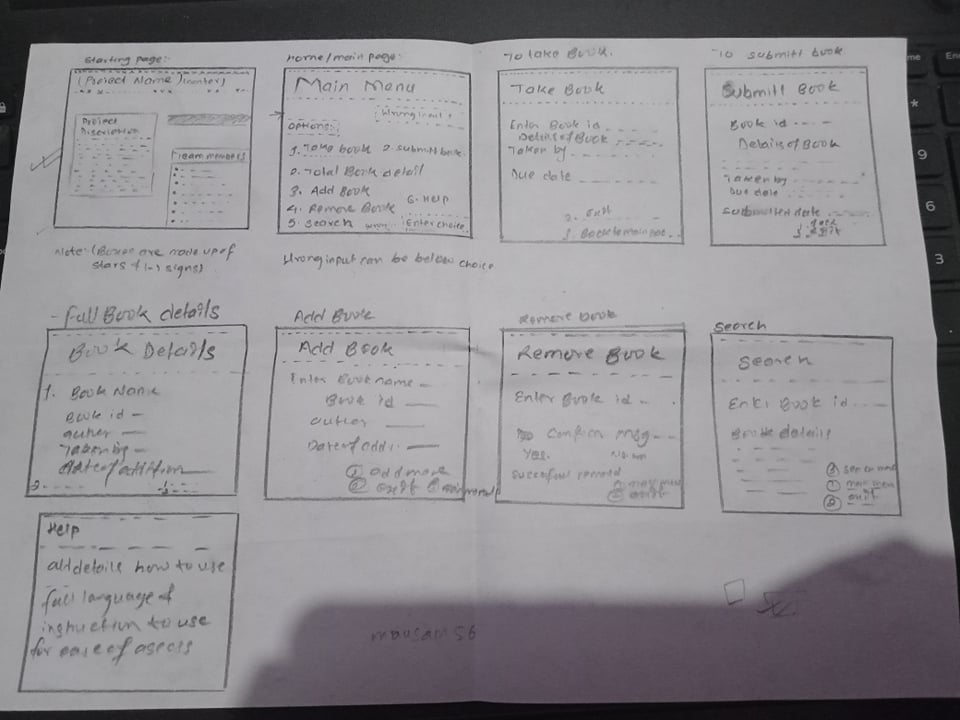 Starting page:
(Project Name) (center)
Project
Discription
Team members
Note: (Boxes are made up of
stars & (-) signs)
Home/main page:
Main Manu
Wrong input
Options:
1. Take book 2. submitt book
2. Total Book detail
3. Add Book
6. Help
4. Remove Book
5. Search
Enter choice.
Wrong input can be below choice
To take Book.
Take Book
Enter Book id
Details of Book
Taken by
Due date
2. Exit
1. Back to main
To submitt book
Submitt Book
Book id
Details of Book
Taken by
Due date
Submitted date
- Full Book details
Book Details
1. Book Name
Book id -
auther -
Taken by -
date of addition
2.
Add Book
Add Book
Enter Book name -
Book id
auther
Date of add :-
① add more
② exit
Remove book
Remove Book
Enter Book id -
Confirm msg
Yes.
No
Successfull removed
Search
Search
Enter Book id
Book details
Help
all details how to use
full language &
instruction to use
for ease of
mausam 56